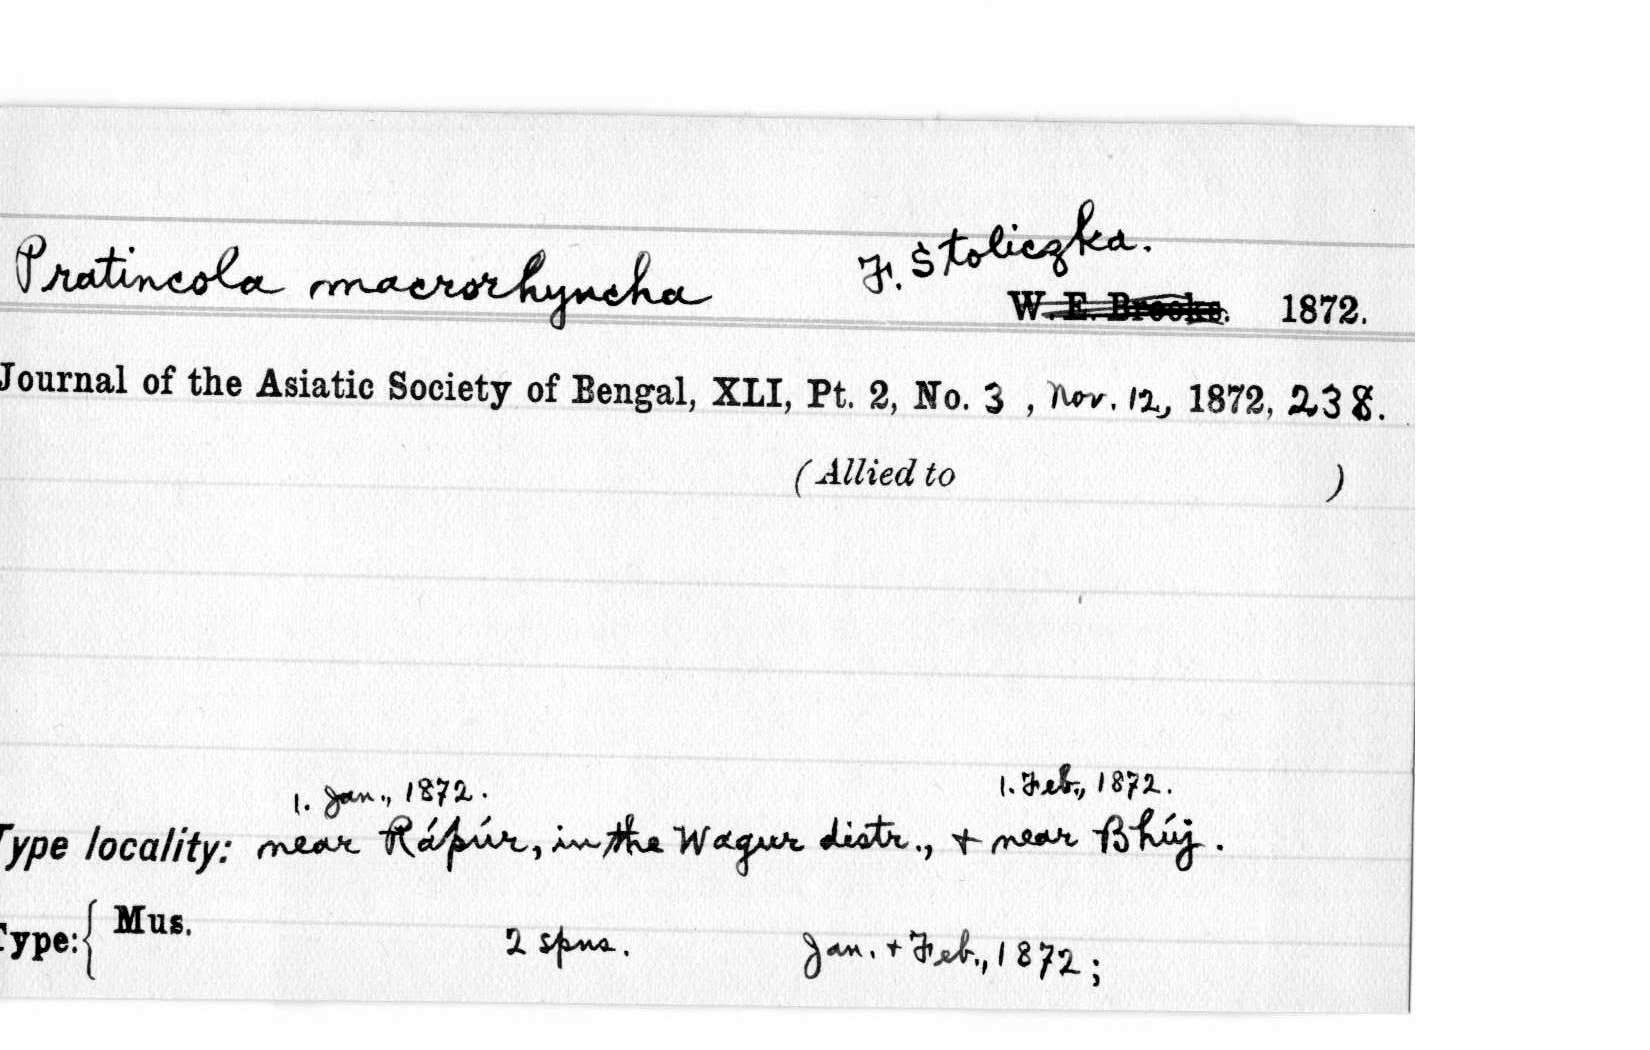 Pratincola macrorhyncha F. Stoliczka.
W. E. Brooks. 1872.
Journal of the Asiatic Society of Bengal, XLI, Pt. 2, No. 3 , Nov. 12, 1872, 238.
(Allied to )
1. Jan., 1872. 1. Feb., 1872.
Type locality: near Rápúr, in the Wagur distr., + near Bhúj.
Type: { Mus. 2 spns. Jan. + Feb., 1872;